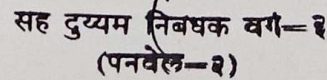 सह दुय्यम निबंधक वर्ग–३
(पनवेल–२)